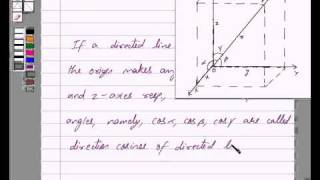 If a directed line
the origin makes
and z-axes resp,
angles, namely, cosα, cosβ, cosγ are called
direction cosines of directed